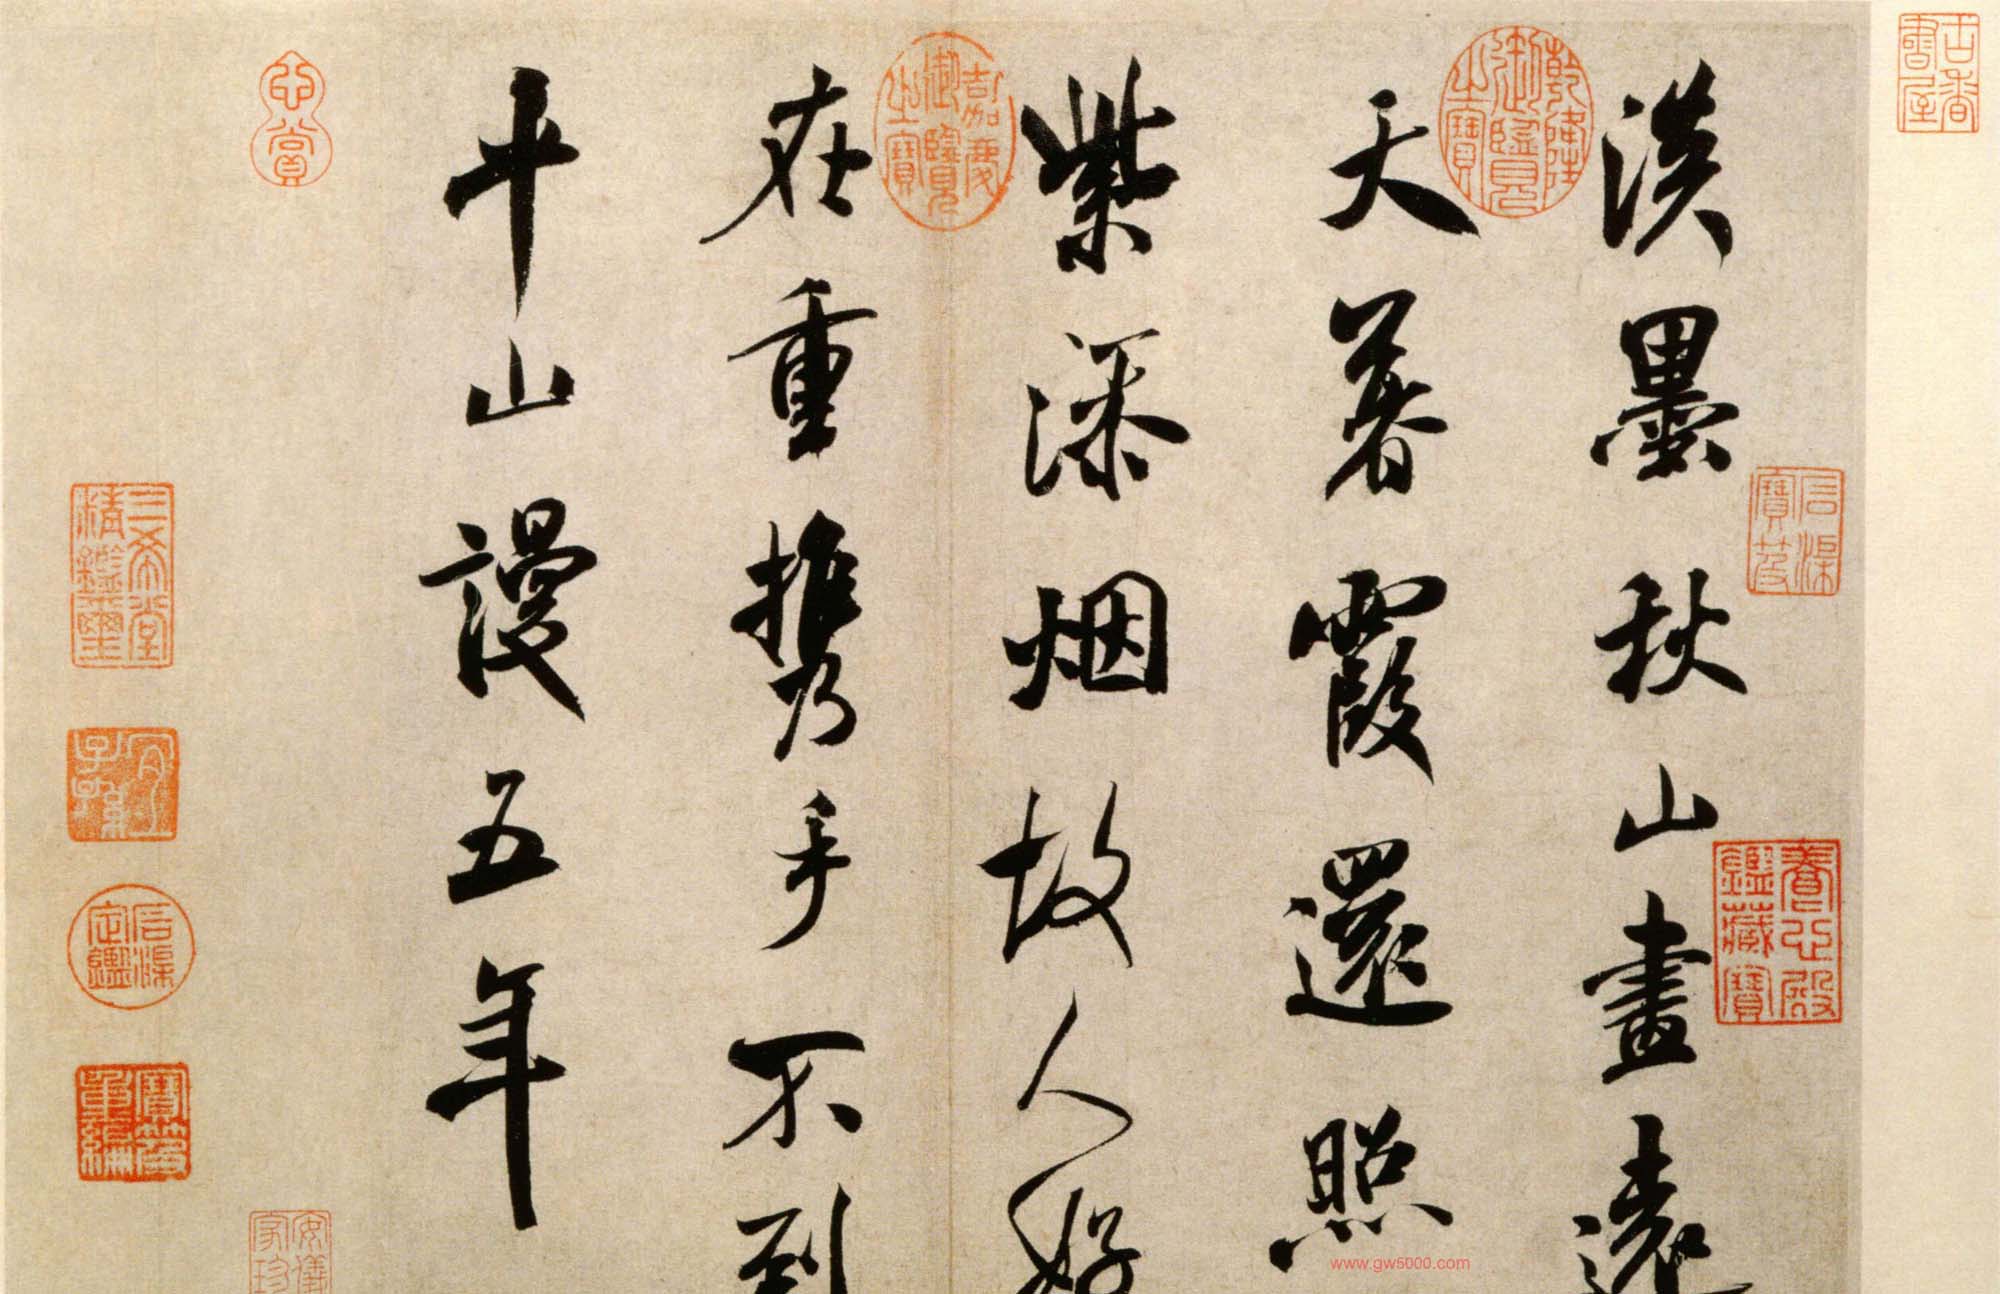 淡墨秋山畫遠
天暮霞還照
紫添烟故人好
在重攜手不到
平山謾五年
乾隆御覽之寶
嘉慶御覽之寶
三希堂精鑑璽
宜子孫
石渠定鑑
寶笈重編
石渠寶笈
養心殿鑑藏寶
古香書屋
安儀周家珍
www.gw5000.com